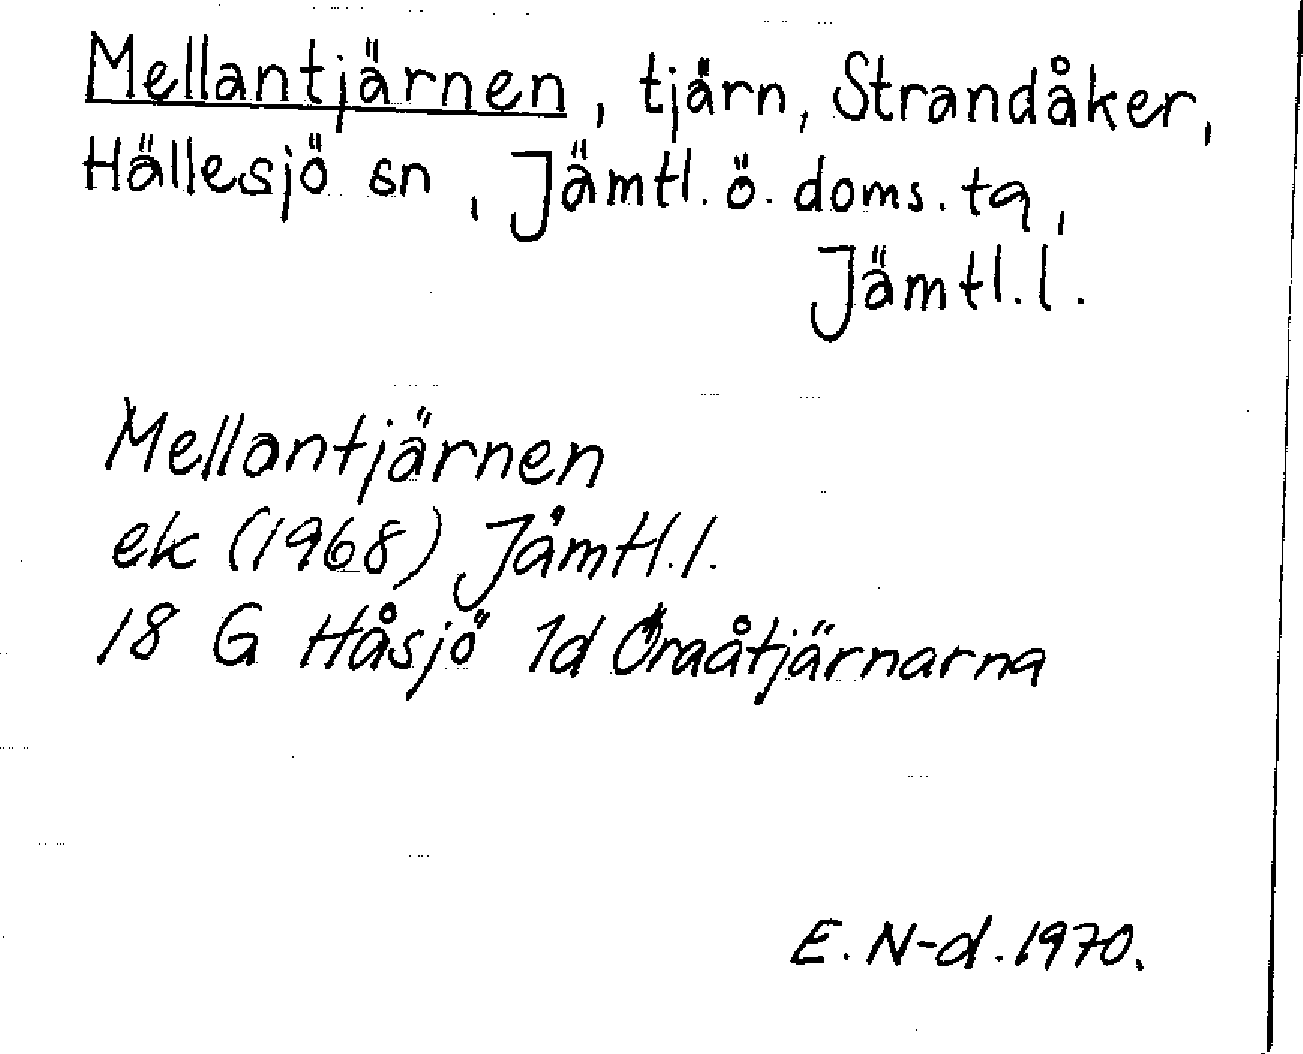 Mellantjärnen, tjärn, Strandåker,
Hällesjö sn, Jämtl. ö. doms. ta,
Jämtl. l.
Mellantjärnen
ek (1968) Jämtl. l.
18 G Håsjö 1d Öraåtjärnarna
E. N-d. 1970.